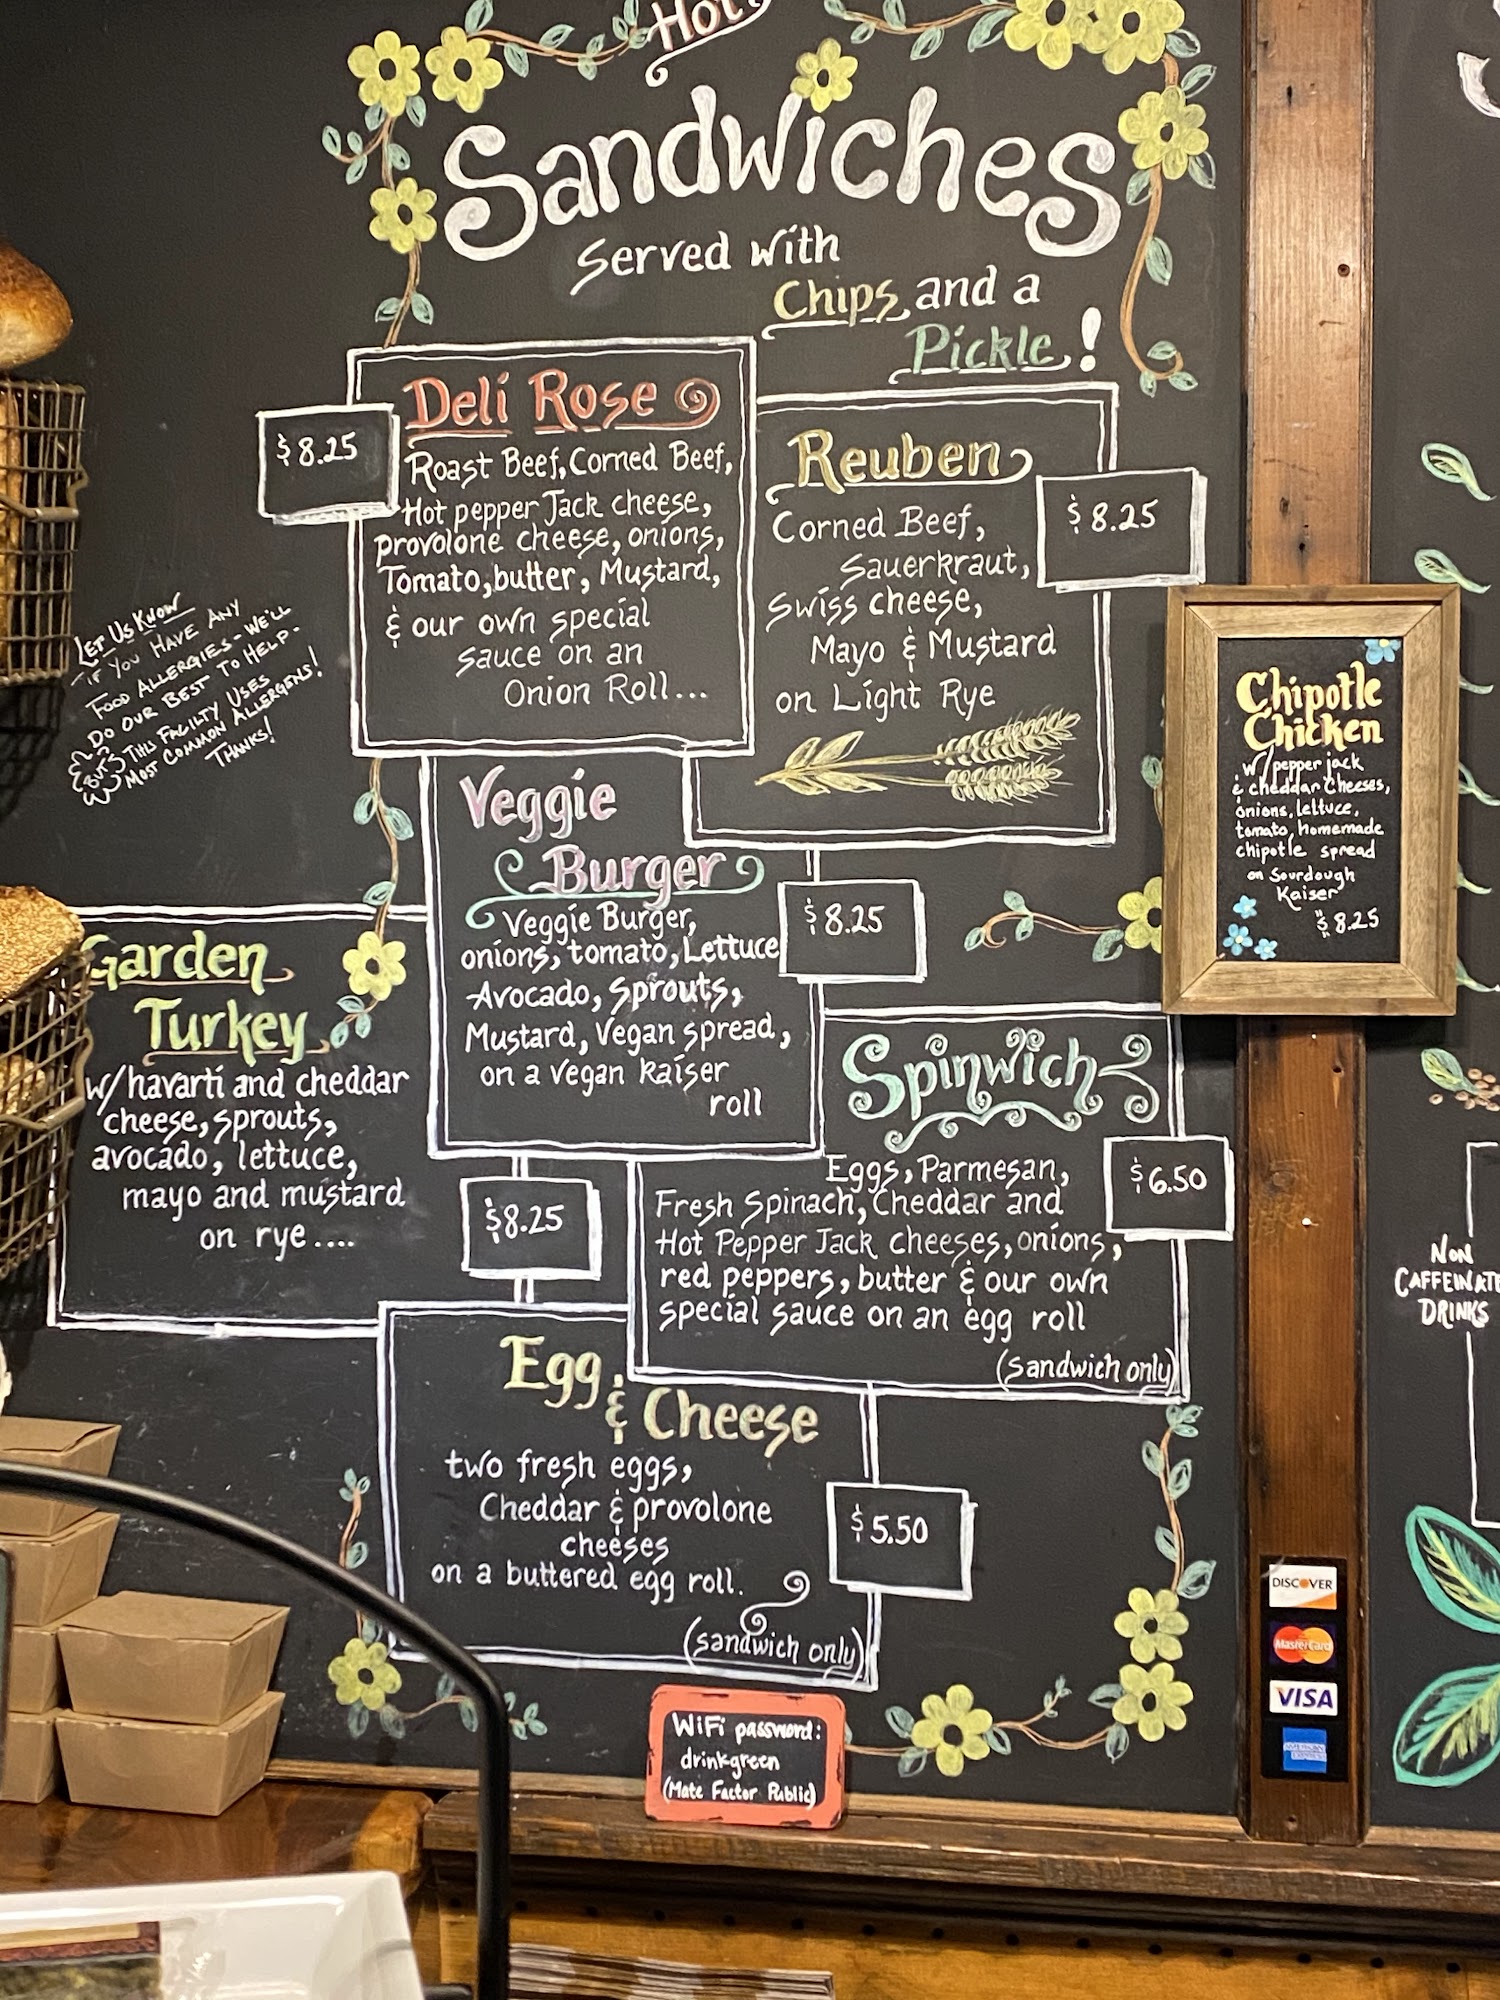 Hot!
Sandwiches
Served with
Chips and a
Pickle!
Deli Rose
$8.25
Roast Beef, Corned Beef,
Hot pepper Jack cheese,
provolone cheese, onions,
Tomato, butter, Mustard,
& our own special
sauce on an
Onion Roll...
Reuben
$8.25
Corned Beef,
Sauerkraut,
Swiss cheese,
Mayo & Mustard
on Light Rye
LET US KNOW
IF YOU HAVE ANY
FOOD ALLERGIES - WE'LL
DO OUR BEST TO HELP -
BUT THIS FACILTY USES
MOST COMMON ALLERGENS!
THANKS!
Chipotle
Chicken
w/ pepper jack
& cheddar cheeses,
onions, lettuce,
tomato, homemade
chipotle spread
on Sourdough
Kaiser
$8.25
Veggie
Burger
$8.25
Veggie Burger,
onions, tomato, Lettuce
Avocado, sprouts,
Mustard, Vegan spread,
on a vegan kaiser
roll
Garden
Turkey
w/ havarti and cheddar
cheese, sprouts,
avocado, lettuce,
mayo and mustard
on rye....
$8.25
Spinwich
$6.50
Eggs, Parmesan,
Fresh Spinach, Cheddar and
Hot Pepper Jack cheeses, onions,
red peppers, butter & our own
special sauce on an egg roll
(sandwich only)
Egg
& Cheese
two fresh eggs,
Cheddar & provolone
cheeses
on a buttered egg roll.
(sandwich only)
$5.50
NON
CAFFEINATE
DRINKS
DISCOVER
MasterCard
VISA
AMERICAN
EXPRESS
WiFi password:
drinkgreen
(Mate Factor Public)